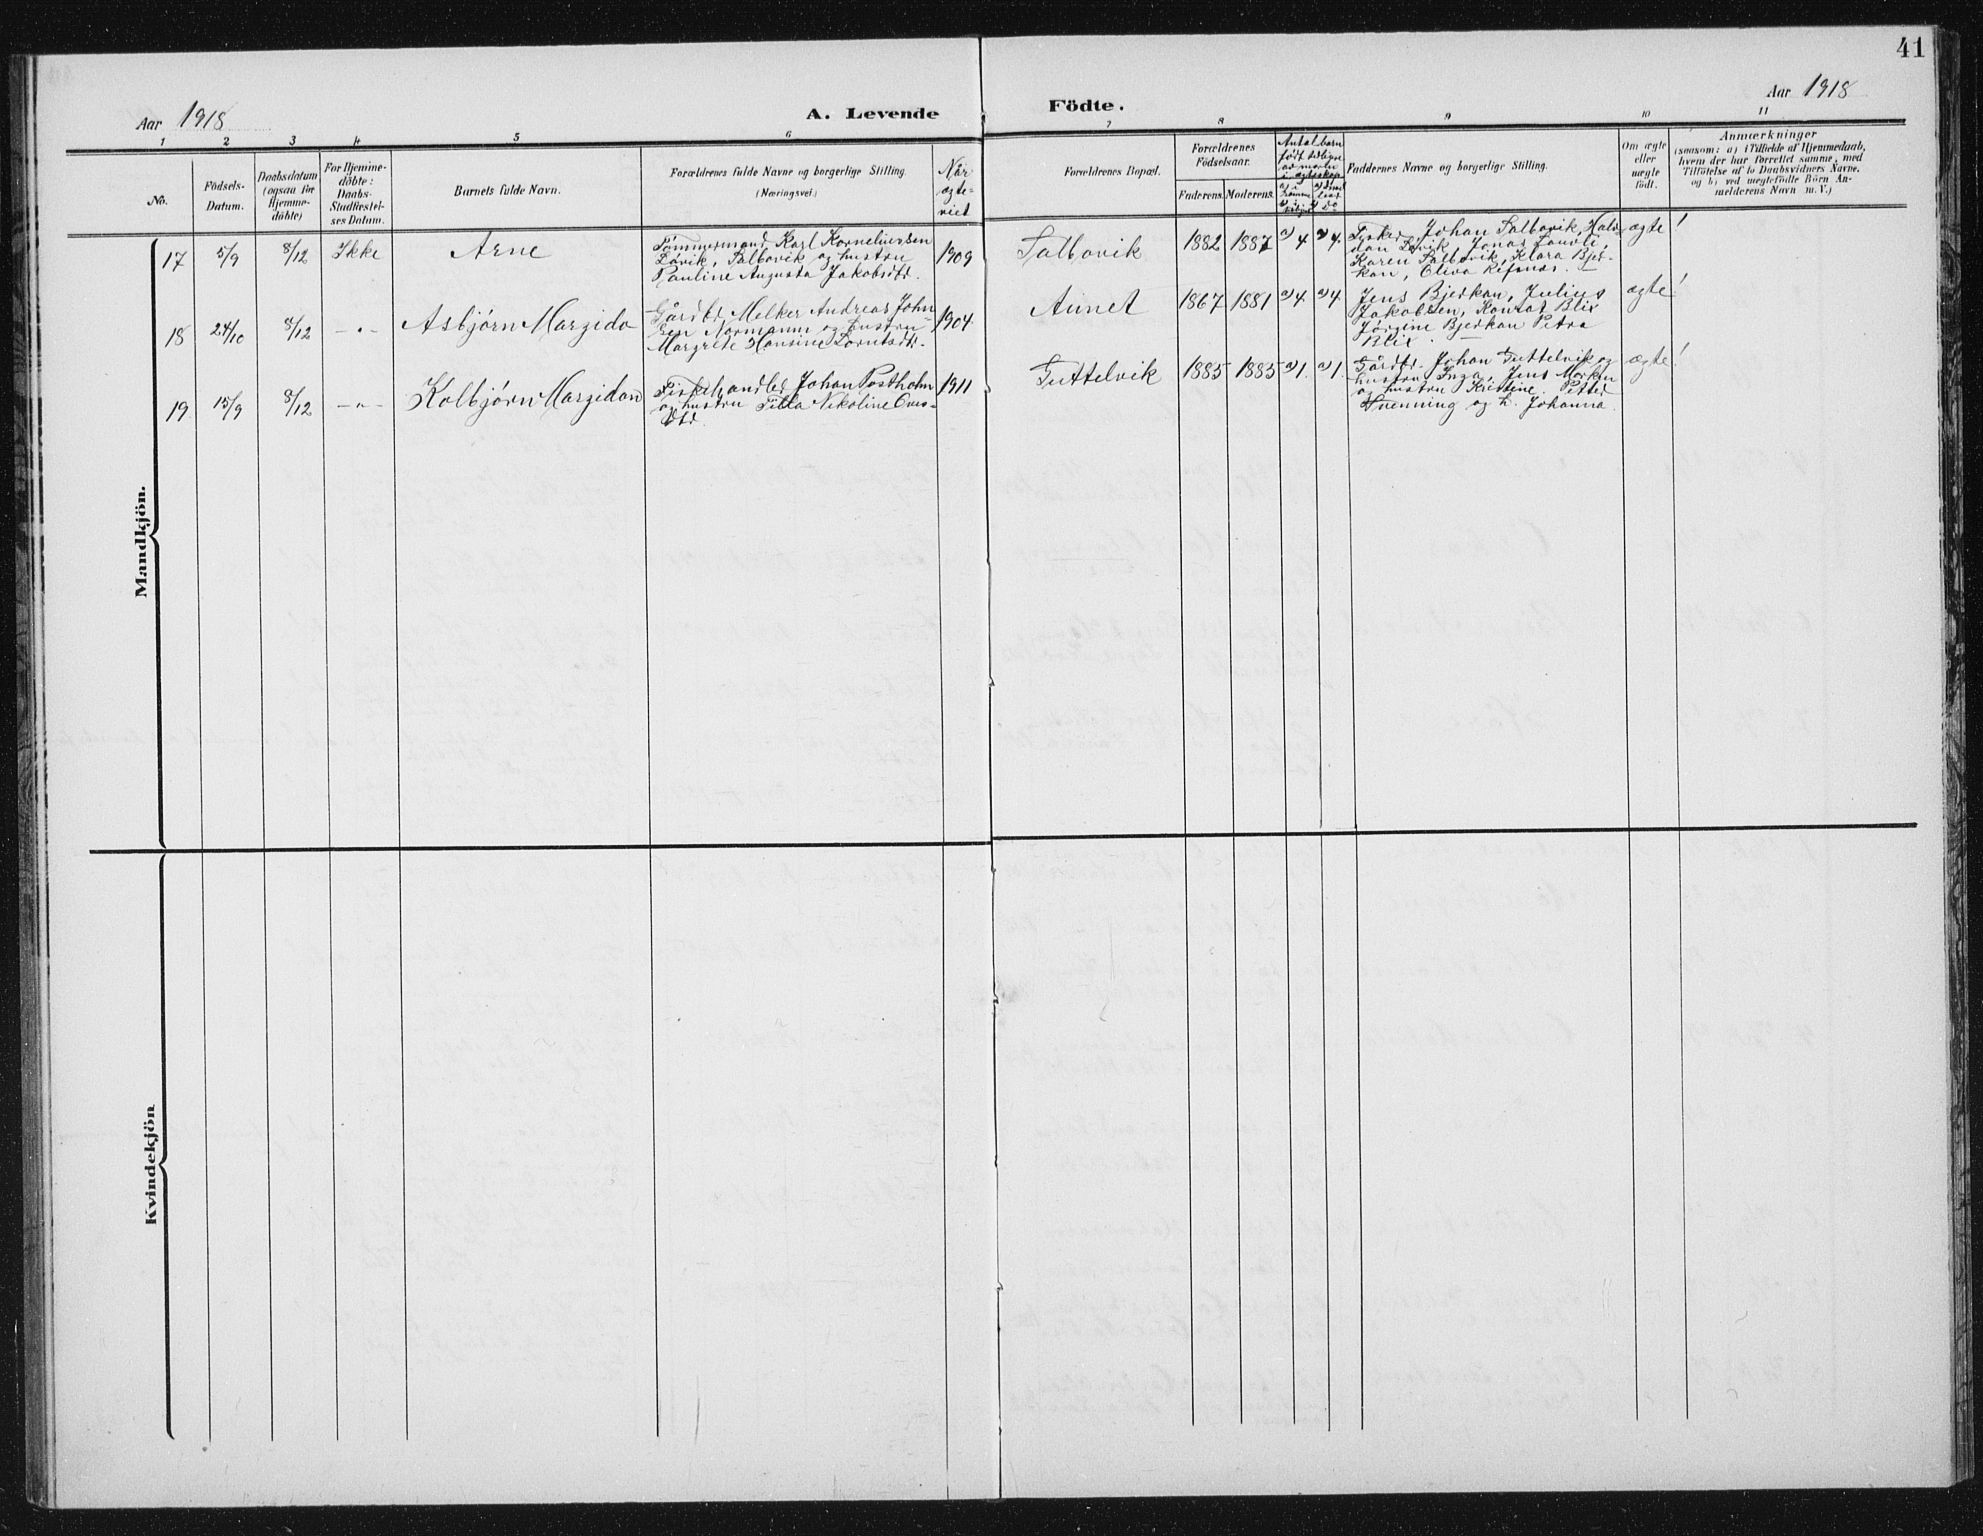 41
Aar 1918
A. Levende Födte.
Aar 1918
1 2 3 4 5 6 7 8 9 10 11
No.
Födsels-
Datum.
Daabsdatum
(ogsaa för
Hjemme-
döbte)
For Hjemme-
döbte:
Daabs-
Stadfæstel-
ses Datum.
Barnets fulde Navn.
Forældrenes fulde Navne og borgerlige Stilling.
(Næringsvei.)
Når
ægte-
viet
Forældrenes Bopæl.
Forældrenes
Födselsaar.
Faderens.
Moderens.
Antal barn
født tidligere
av moren
i ægteskap
Faddernes Navne og borgerlige Stilling.
Om ægte
eller
uægte
født.
Anmærkninger
(saasom: a) i Tilfælde af Hjemmedaab,
hvem der har forrettet samme, med
Tilföielse af to Daabsvidners Navne,
og b) ved uægtefödte Börn An-
melderens Navn m. V.)
Mandkjön.
17 5/9 8/12 Ikke Arne
Tömmermand Karl Korneliussen
Løvik, Salbovik og hustru
Pauline Augusta Jakobsdtr.
1909
Salbovik 1882 1887 a) 4 a) 4.
Fisker Johan Salbovik, Halv-
dan Løvik, Jonas
Karen Salbovik, Klara Bjer-
kan, Oliva Refsnes.
ægte !
18 24/10 8/12 -"- Asbjørn Margido
Gårdbr Melker Andreas John
sen Normann og hustru
Margrete Hansine Lorntsdtr.
1904
Aunet 1867 1881 a) 4. a) 4.
Jens Bjerkan, Julius
Jakobsen, Konrad Blix
Jørgine Bjerkan Petra
Blix.
ægte !
19 15/9 8/12 -"- Kolbjørn Margidon
Fiskehandler Johan Postholm
og hustru Tilla Nikoline
Dtr.
1911
Guttelvik 1885 1885 a) 1. a) 1.
Gårdbr. Johan Guttelvik og
hustru Inga, Jens Morken
og hustru Kristine, Petter
Svenning og h. Johanna.
ægte !
Kvindekjön